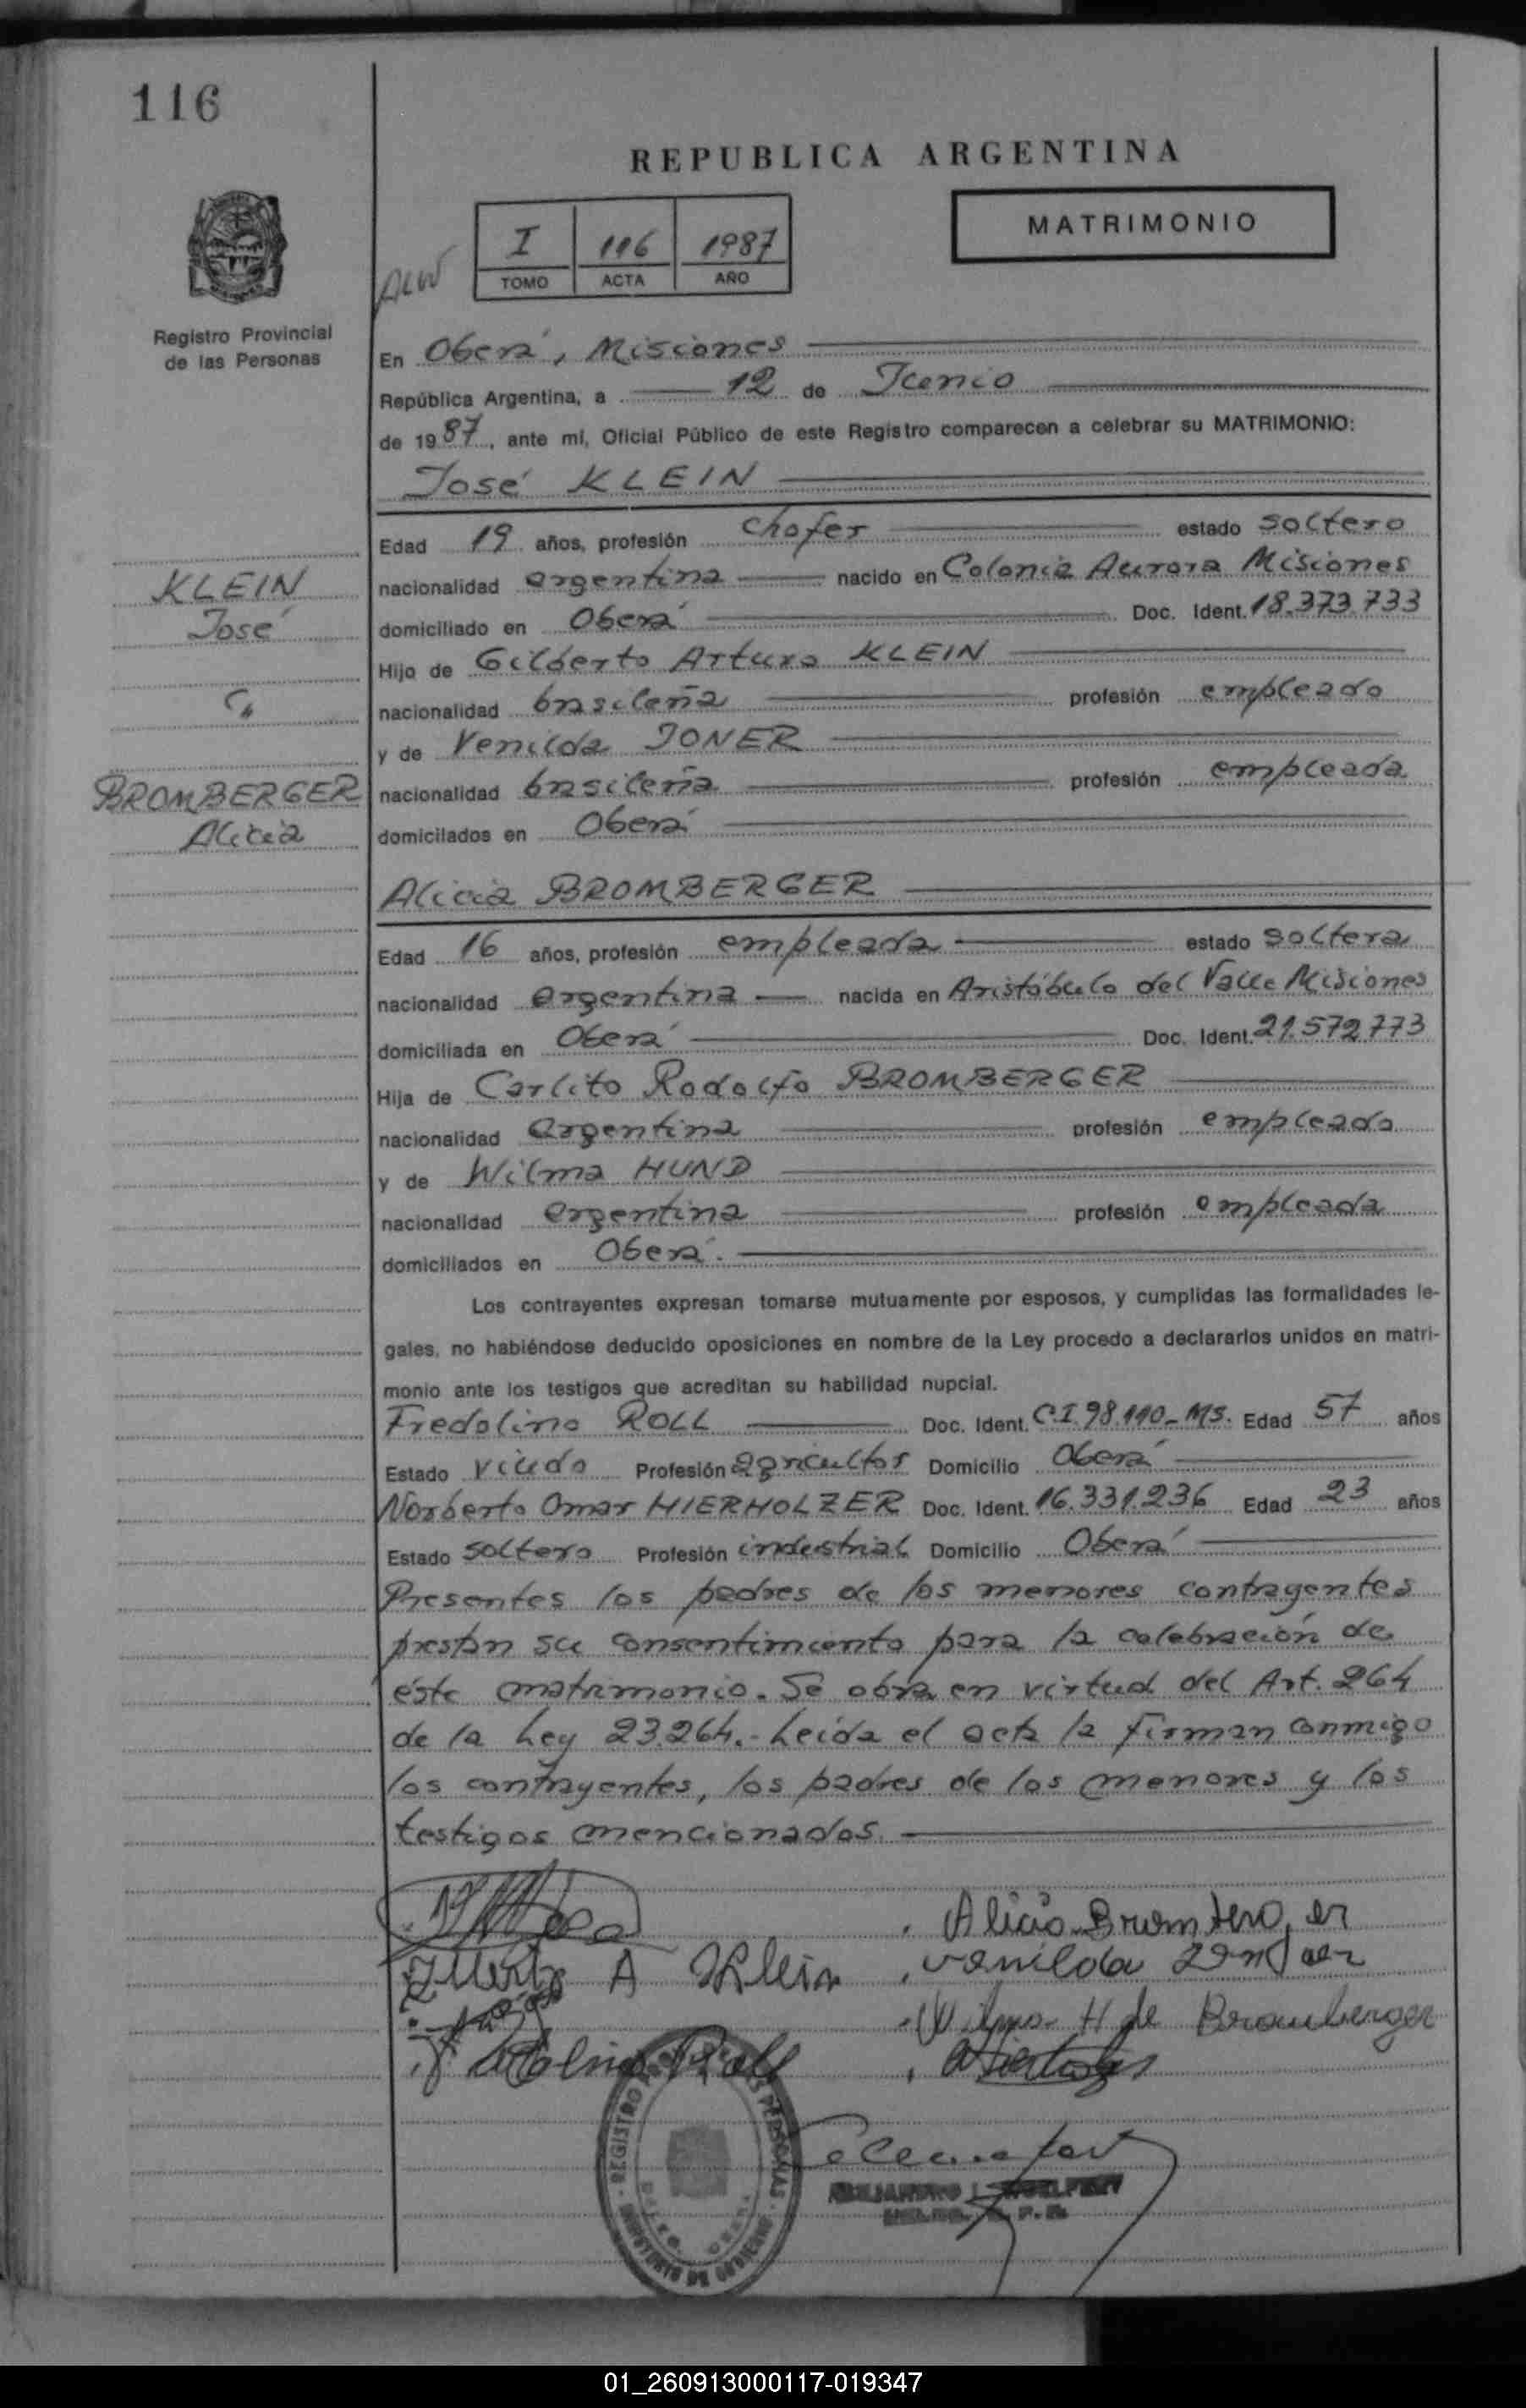 116
REPUBLICA ARGENTINA
MATRIMONIO
I 116 1987
TOMO ACTA AÑO
Registro Provincial
de las Personas
En Oberá, Misiones
República Argentina, a 12 de Junio
de 1987, ante mí, Oficial Público de este Registro comparecen a celebrar su MATRIMONIO:
José KLEIN
Edad 19 años, profesión chofer estado soltero
KLEIN
José
nacionalidad argentina nacido en Colonia Aurora Misiones
domiciliado en Oberá Doc. Ident. 18.373.733
Hijo de Gilberto Arturo KLEIN
nacionalidad brasileña profesión empleado
y de Venilda JONER
BROMBERGER
Alicia
nacionalidad brasileña profesión empleada
domicilados en Oberá
Alicia BROMBERGER
Edad 16 años, profesión empleada estado soltera
nacionalidad argentina nacida en Aristóbulo del Valle Misiones
domiciliada en Oberá Doc. Ident. 21.572.773
Hija de Carlito Rodolfo BROMBERGER
nacionalidad argentina profesión empleado
y de Wilma HUND
nacionalidad argentina profesión empleada
domiciliados en Oberá.
Los contrayentes expresan tomarse mutuamente por esposos, y cumplidas las formalidades le-
gales, no habiéndose deducido oposiciones en nombre de la Ley procedo a declararlos unidos en matri-
monio ante los testigos que acreditan su habilidad nupcial.
Fredolino ROLL Doc. Ident. C.I. 98.110-MS. Edad 57 años
Estado viudo Profesión agricultor Domicilio Oberá
Norberto Omar HIERHOLZER Doc. Ident. 16.331.236 Edad 23 años
Estado soltero Profesión industrial Domicilio Oberá
Presentes los padres de los menores contrayentes
prestan su consentimiento para la celebración de
éste matrimonio. Se obra en virtud del Art. 264
de la Ley 23.264.- Leída el acta la firman conmigo
los contrayentes, los padres de los menores y los
testigos mencionados.
A Klein
Wilma H de Bromberger
REGISTRO PERSONAS
01_260913000117-019347